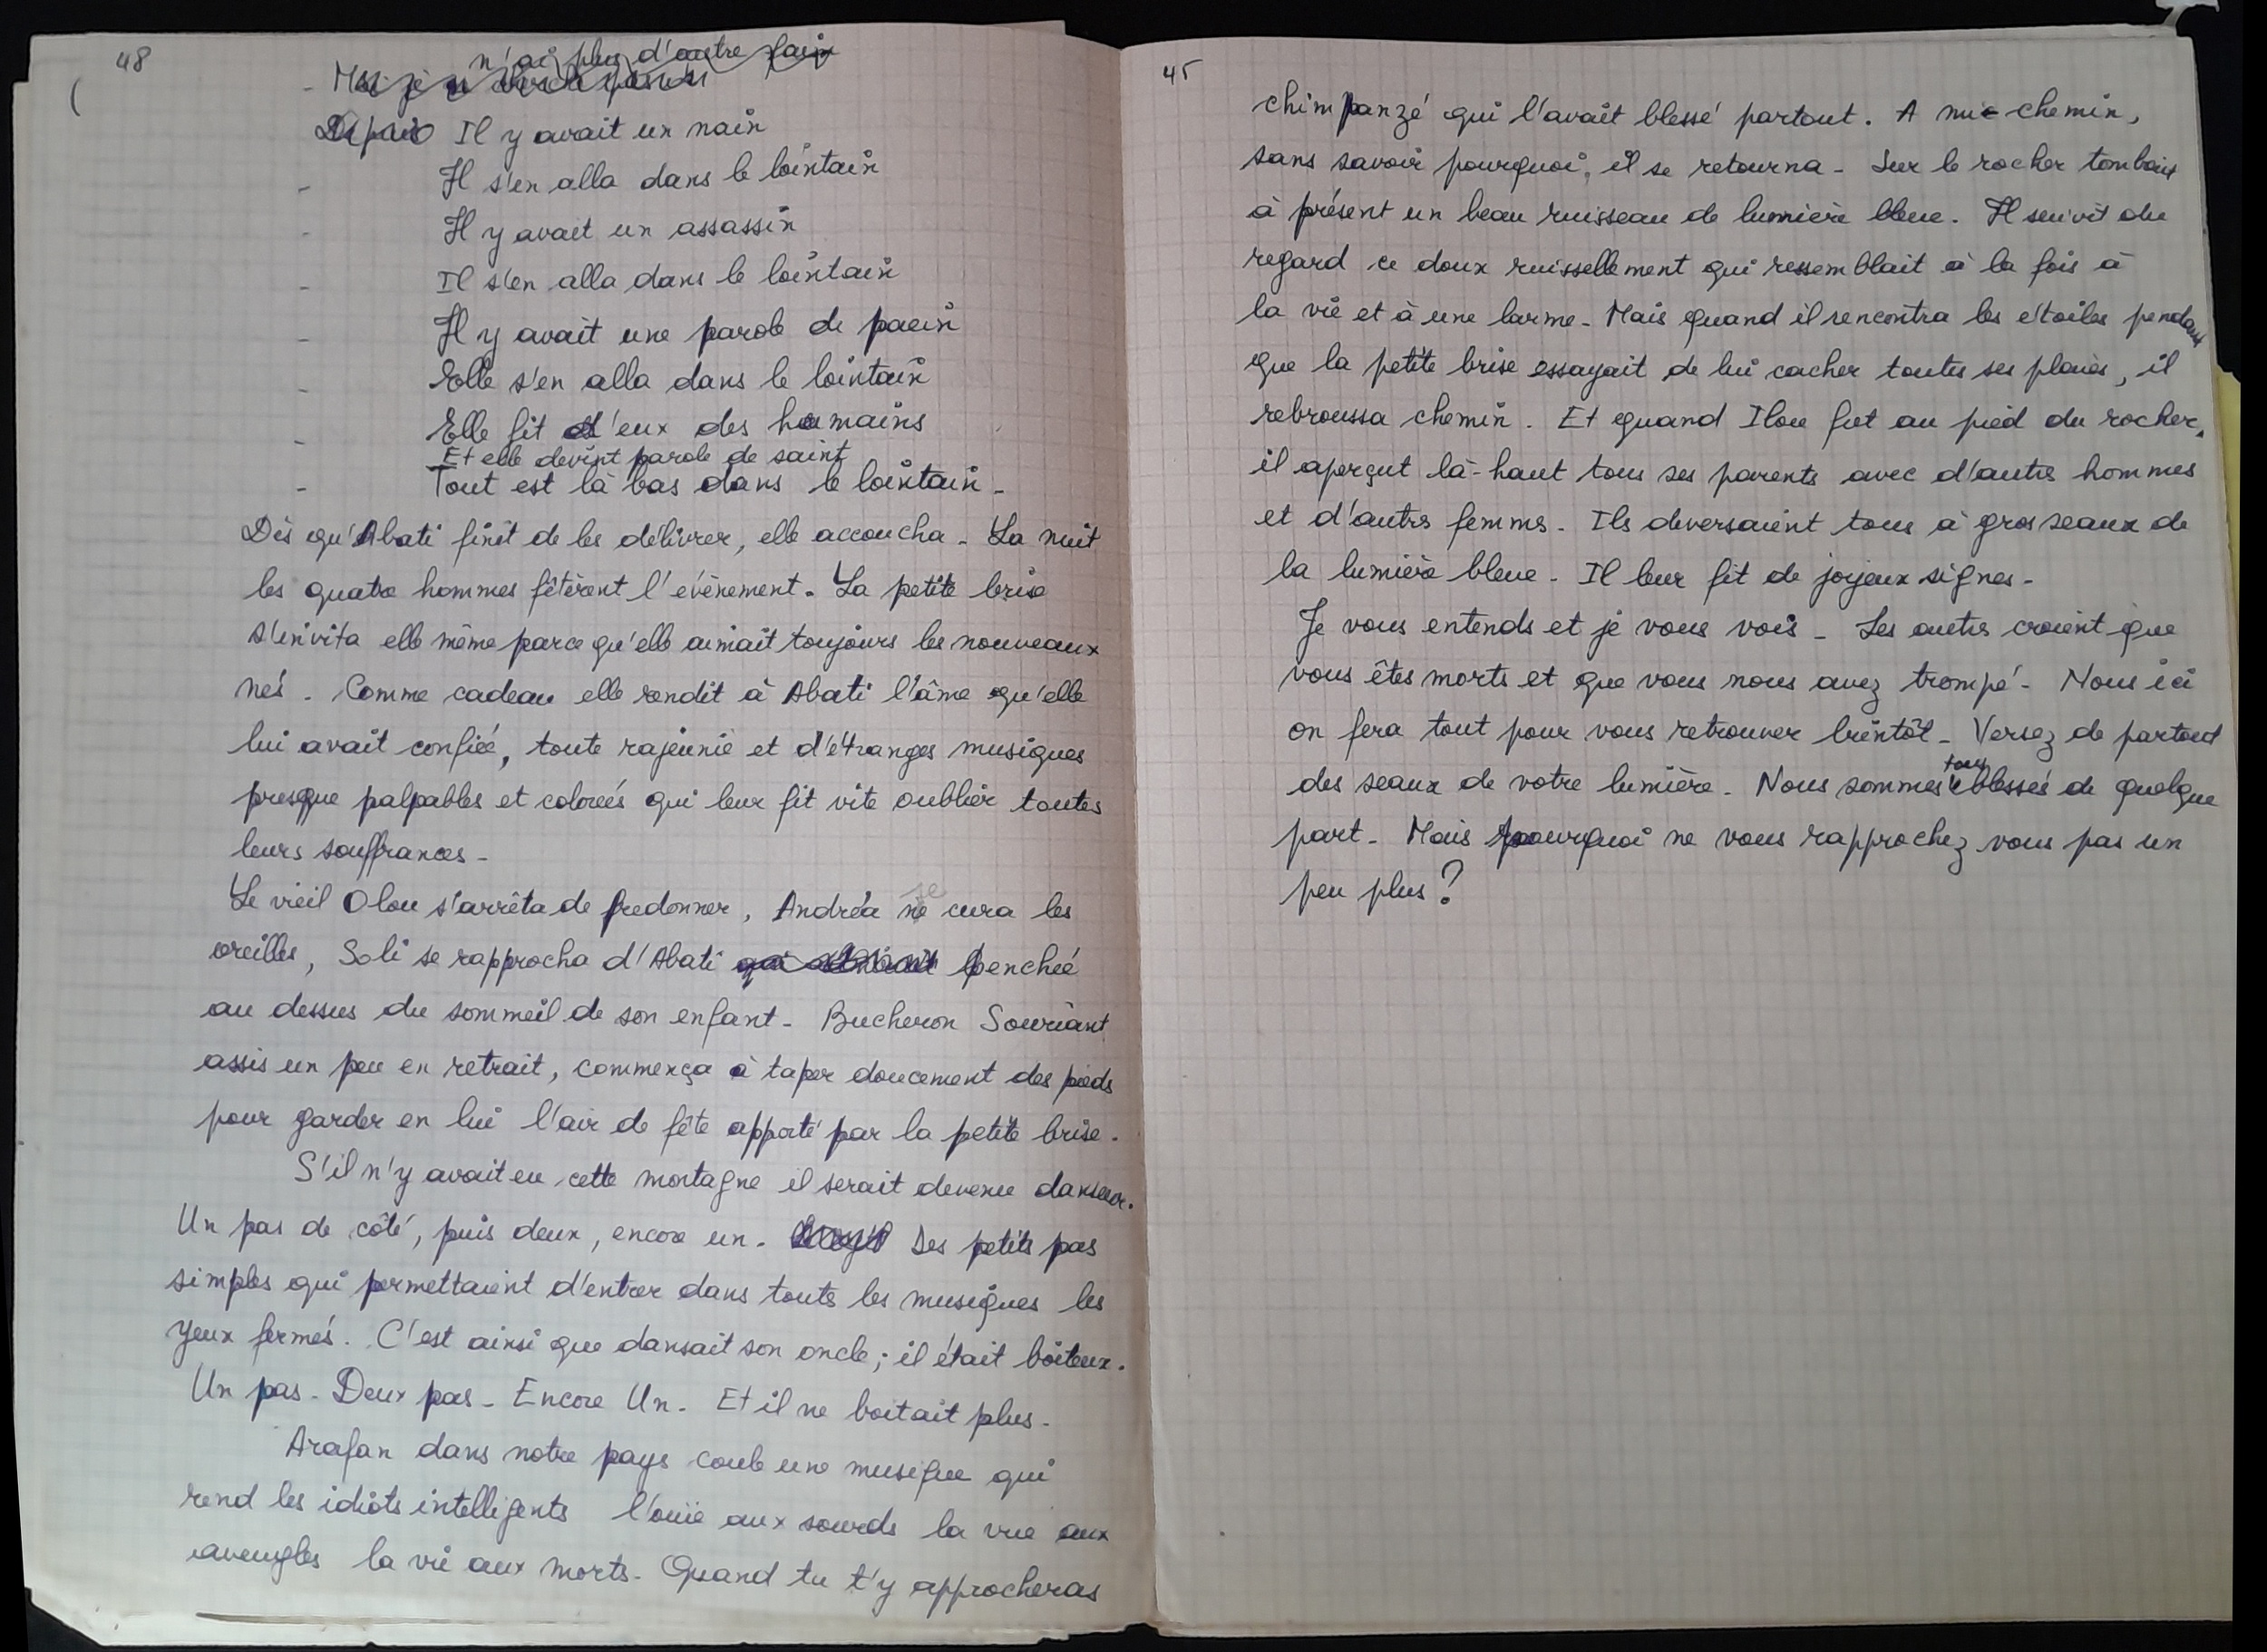 48
n'ai plus d'autre faim
- Moi je ne cherche pas un
Depuis Il y avait un nain
- Il s'en alla dans le lointain
- Il y avait un assassin
- Il s'en alla dans le lointain
- Il y avait une parole de paein
- Elle s'en alla dans le lointain
- Elle fit d'eux des humains
Et elle devint parole de saint
- Tout est là bas dans le lointain -
Dès qu'Abati finit de les délivrer, elle accoucha - La nuit
les quatre hommes fêtèrent l'évènement. La petite brise
s'invita elle même parce qu'elle aimait toujours les nouveaux
nés. Comme cadeau elle rendit à Abati l'âme qu'elle
lui avait confiée, toute rajeunie et d'étranges musiques
presque palpables et colorées qui leur fit vite oublier toutes
leurs souffrances -
Le vieil Olou s'arrêta de fredonner, Andréa se cura les
oreilles, Soli se rapprocha d'Abati penchée
au dessus du sommeil de son enfant - Bucheron Souriant
assis un peu en retrait, commença à taper doucement des pieds
pour garder en lui l'air de fête apporté par la petite brise.
S'il n'y avait eu cette montagne il serait devenu danseur.
Un pas de côté, puis deux, encore un. Des petits pas
simples qui permettaient d'entrer dans toutes les musiques les
yeux fermés. C'est ainsi que dansait son oncle; il était boiteux.
Un pas - Deux pas - Encore Un - Et il ne boitait plus -
Arafan dans notre pays coule une musique qui
rend les idiots intelligents l'ouïe aux sourds la vue aux
aveugles la vie aux morts - Quand tu t'y approcheras
45
chimpanzé qui l'avait blessé partout. A mi-chemin,
sans savoir pourquoi, il se retourna - Sur le rocher tombait
à présent un beau ruisseau de lumière bleue. Il suivit du
regard ce doux ruissellement qui ressemblait à la fois à
la vie et à une larme - Mais quand il rencontra les étoiles pendant
que la petite brise essayait de lui cacher toutes ses plaies, il
rebroussa chemin. Et quand Ilou fut au pied du rocher,
il aperçut là-haut tous ses parents avec d'autres hommes
et d'autres femmes - Ils deversaient tous à gros seaux de
la lumière bleue - Il leur fit de joyeux signes -
Je vous entends et je vous vois - Les autres croient que
vous êtes morts et que vous nous avez trompé - Nous ici
on fera tout pour vous retrouver bientôt - Versez de partout
des seaux de votre lumière - Nous sommes tous blessés de quelque
part - Mais pourquoi ne vous rapprochez vous pas un
peu plus ?